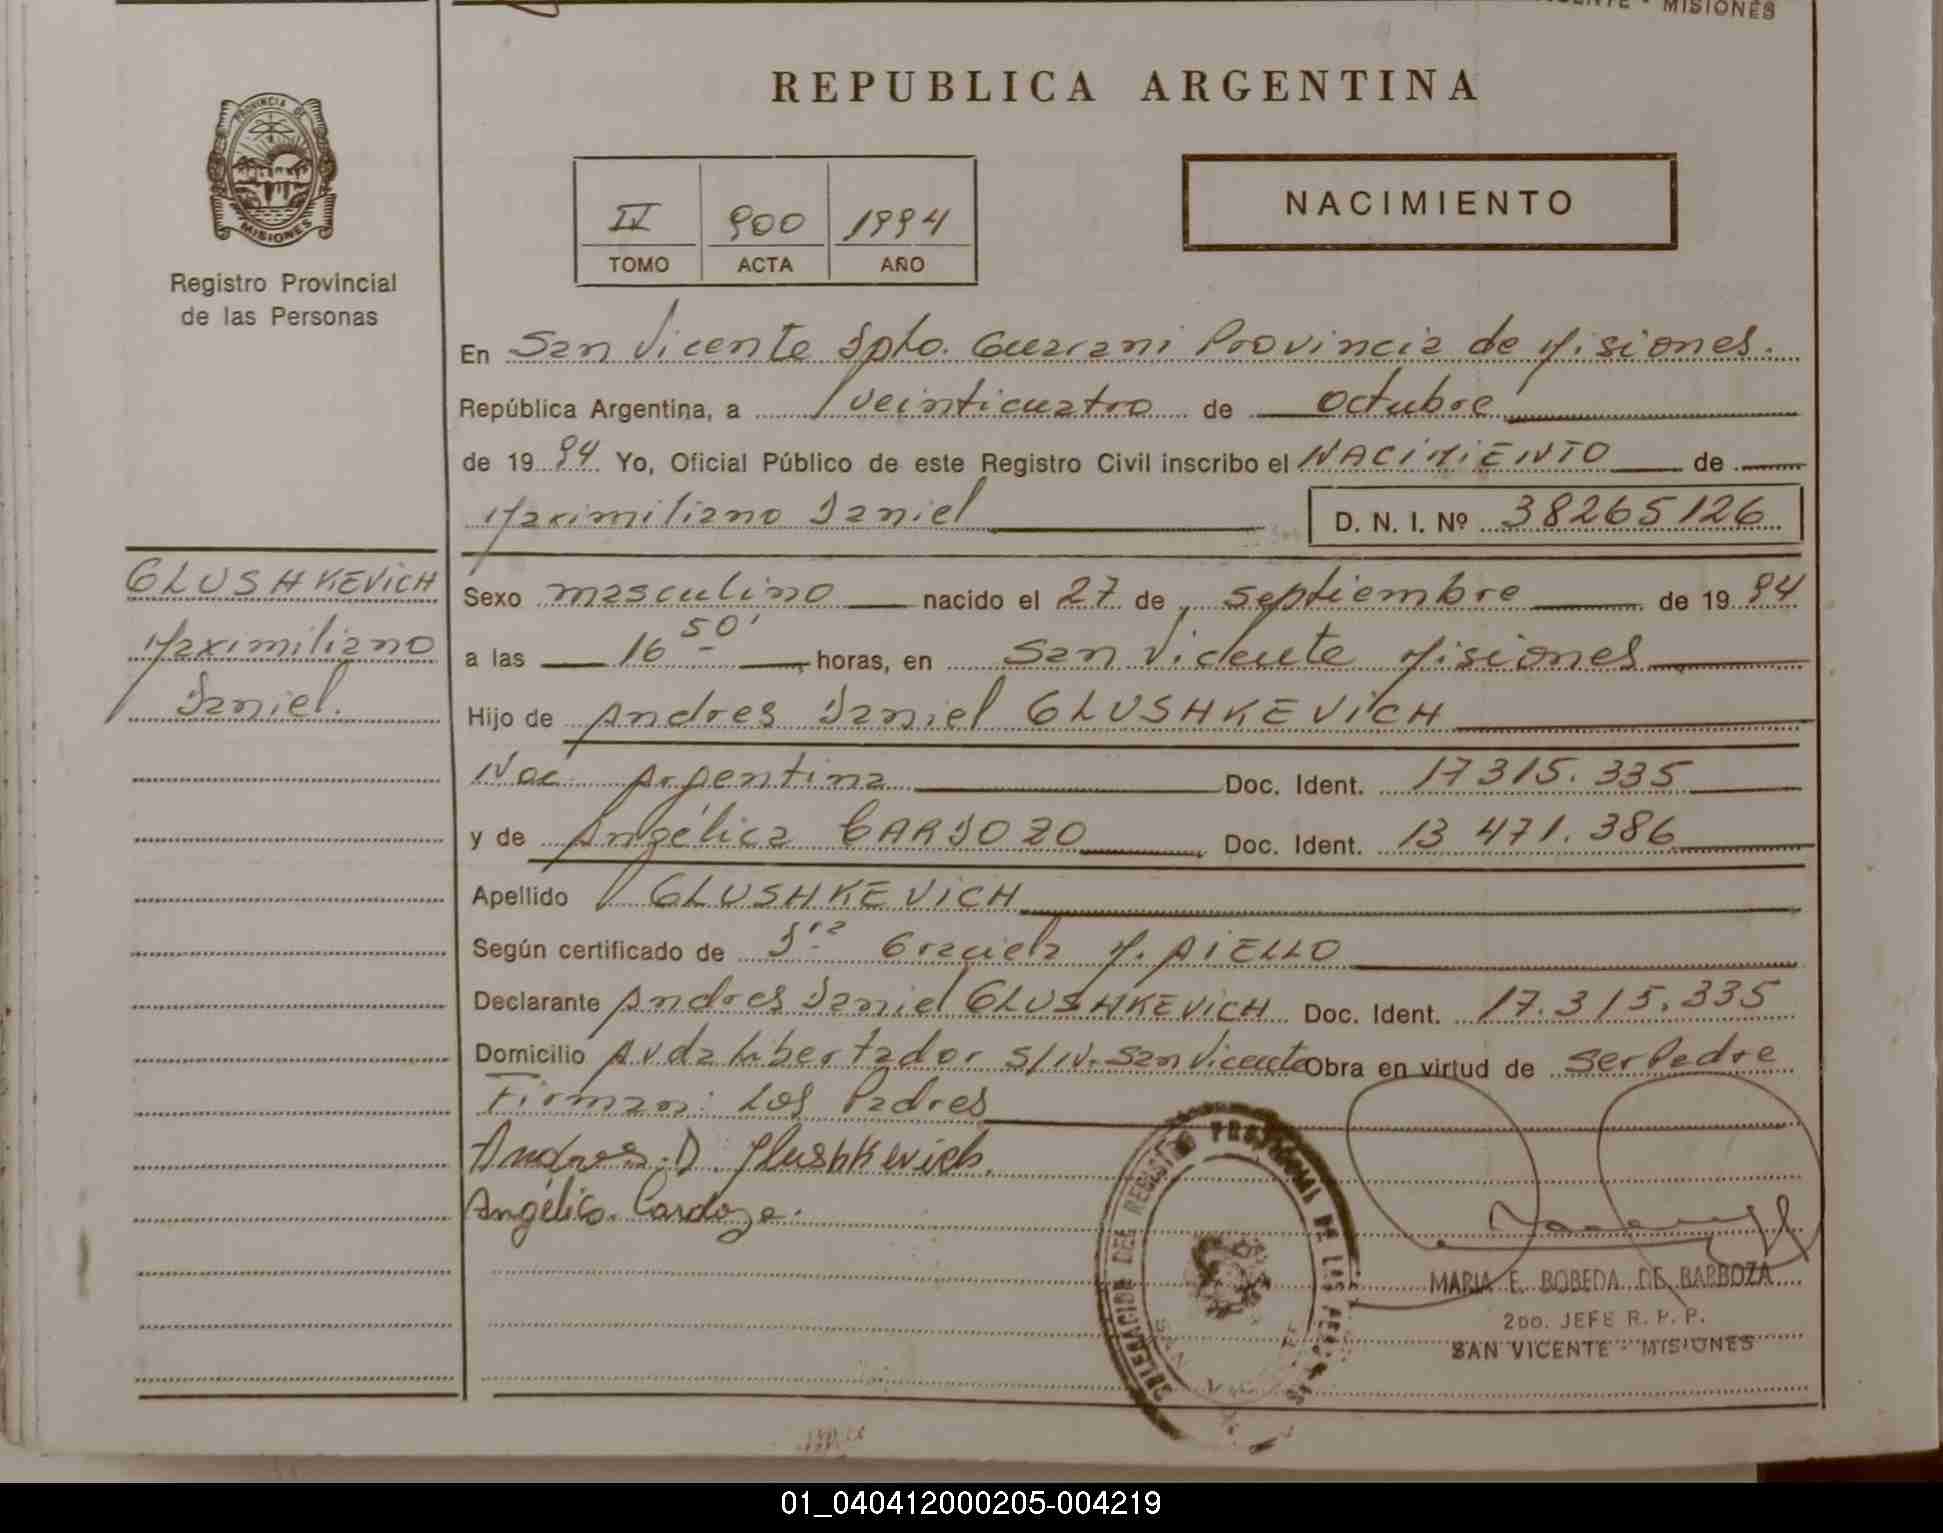 MISIONES
REPUBLICA ARGENTINA
PROVINCIA DE
MISIONES
Registro Provincial
de las Personas
IV 900 1994
TOMO ACTA AÑO
NACIMIENTO
En San Vicente Dpto. Guarani Provincia de Misiones.
República Argentina, a veinticuatro de octubre
de 1994 Yo, Oficial Público de este Registro Civil inscribo el NACIMIENTO de
Maximiliano Daniel D. N. I. Nº 38265126
GLUSHKEVICH
Maximiliano
Daniel.
Sexo masculino nacido el 27 de septiembre de 1994
a las 16 50' horas, en San Vicente Misiones
Hijo de Andres Daniel GLUSHKEVICH
Nac. Argentina Doc. Ident. 17315.335
y de Angélica CARDOZO Doc. Ident. 13 471.386
Apellido GLUSHKEVICH
Según certificado de Dra Graciela M. AIELLO
Declarante Andres Daniel GLUSHKEVICH Doc. Ident. 17.315.335
Domicilio Avda Libertador S/N. San Vicente Obra en virtud de ser Padre
Firman: Los Padres
Andres. D. Glushkevich.
Angélica. Cardozo.
DELEGACION DEL REGISTRO PROVINCIAL DE LAS PERSONAS
MARIA E. BOBEDA DE BARBOZA
2DO. JEFE R. P. P.
SAN VICENTE - MISIONES
01_040412000205-004219